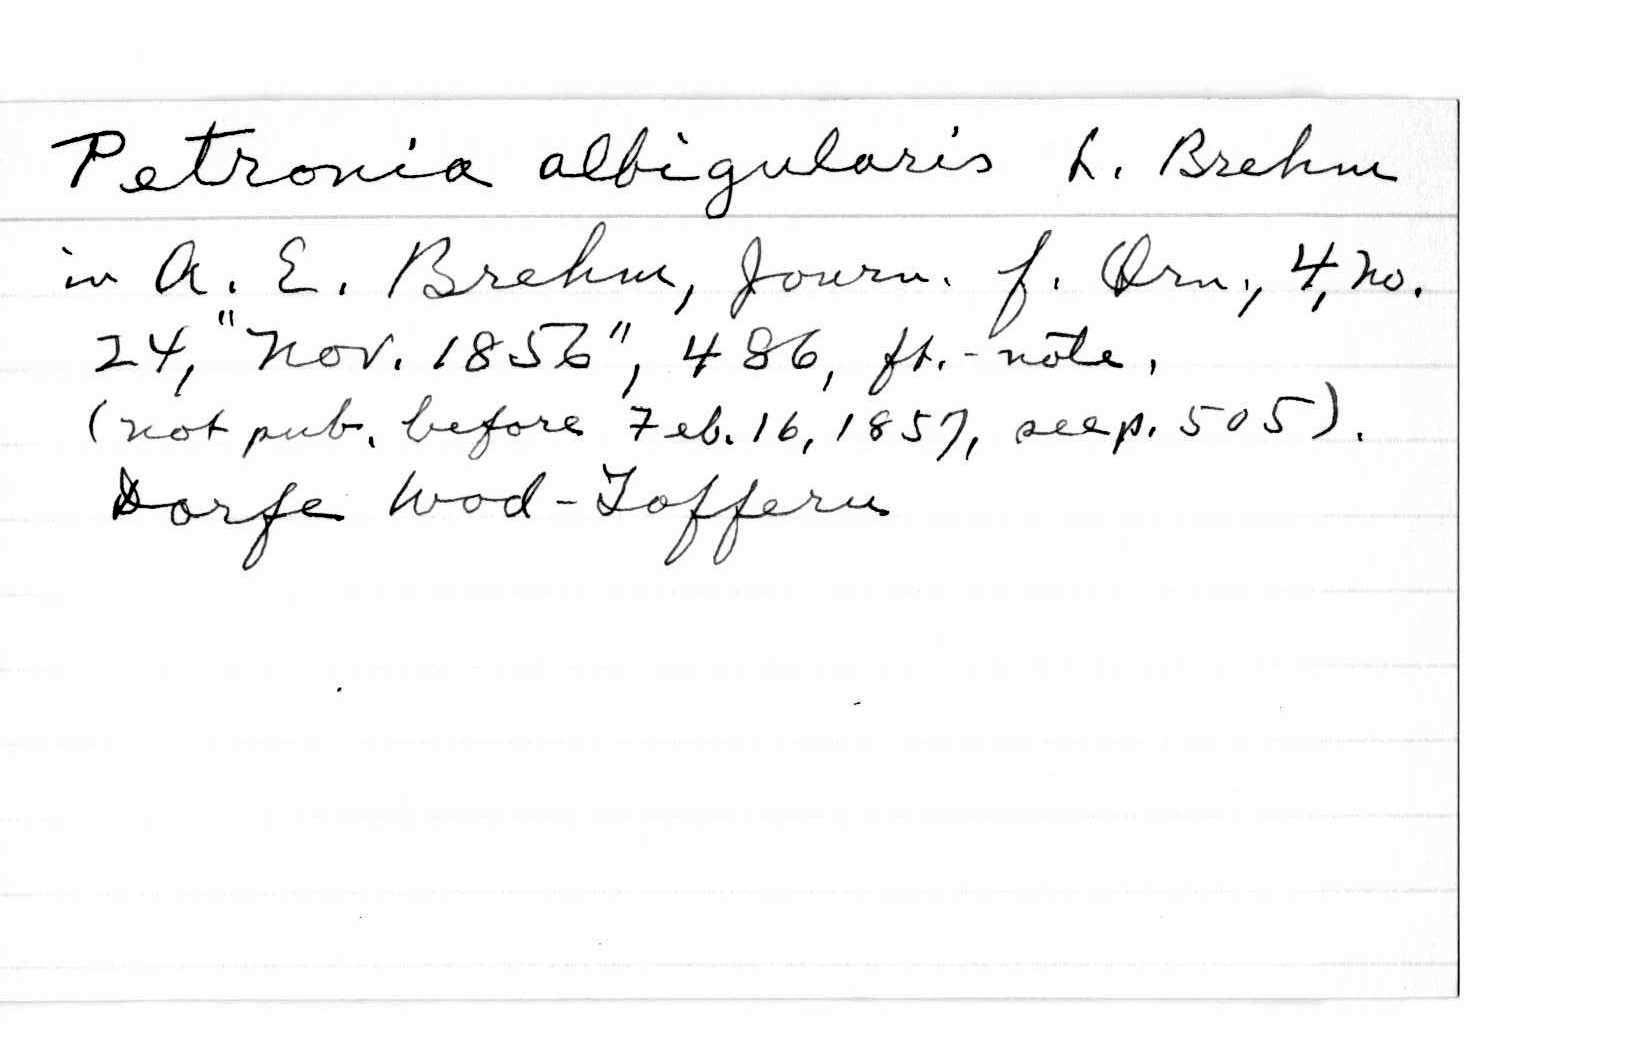 Petronia albigularis L. Brehm
in A. E. Brehm, Journ. f. Orn., 4, no.
24, "Nov. 1856", 486, ft.-note.
(not pub. before Feb. 16, 1857, see p. 505).
Dorfe Wod-Tofferu